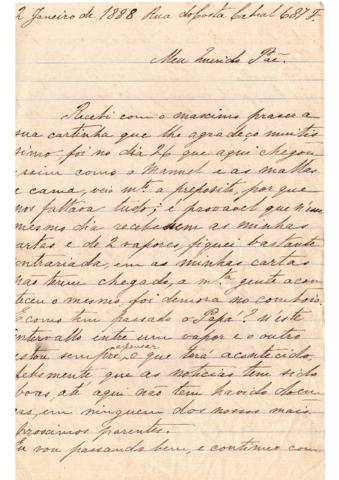 2 Janeiro de 1888 Rua do Costa Cabral 687 F.
Meu Querido Pae.
Recebi com o maximo praser a
sua cartinha que lhe agradeço muitis
simo foi no dia 26 que aqui chegou
assim como o Manuel e as mallas
e cama, veio m.to a preposito, por que
nos faltava tudo; é provavel que n'esse
mesmo dia recebessem as minhas
cartas e de 2 vapores, fiquei bastante
contrariada, em as minhas cartas
nao terem chegado, a m.ta gente acon
teceu o mesmo, foi demora no comboio.
E como tem passado o Papá? N'este
intervallo entre um vapor e o outro
estou sempre a pensar, o que terá acontecido,
felismente que as noticias tem sido
boas, até aqui não tem havido doen
ças, em ninguem dos nossos mais
proximos parentes.
Eu vou passando bem, e continuo com